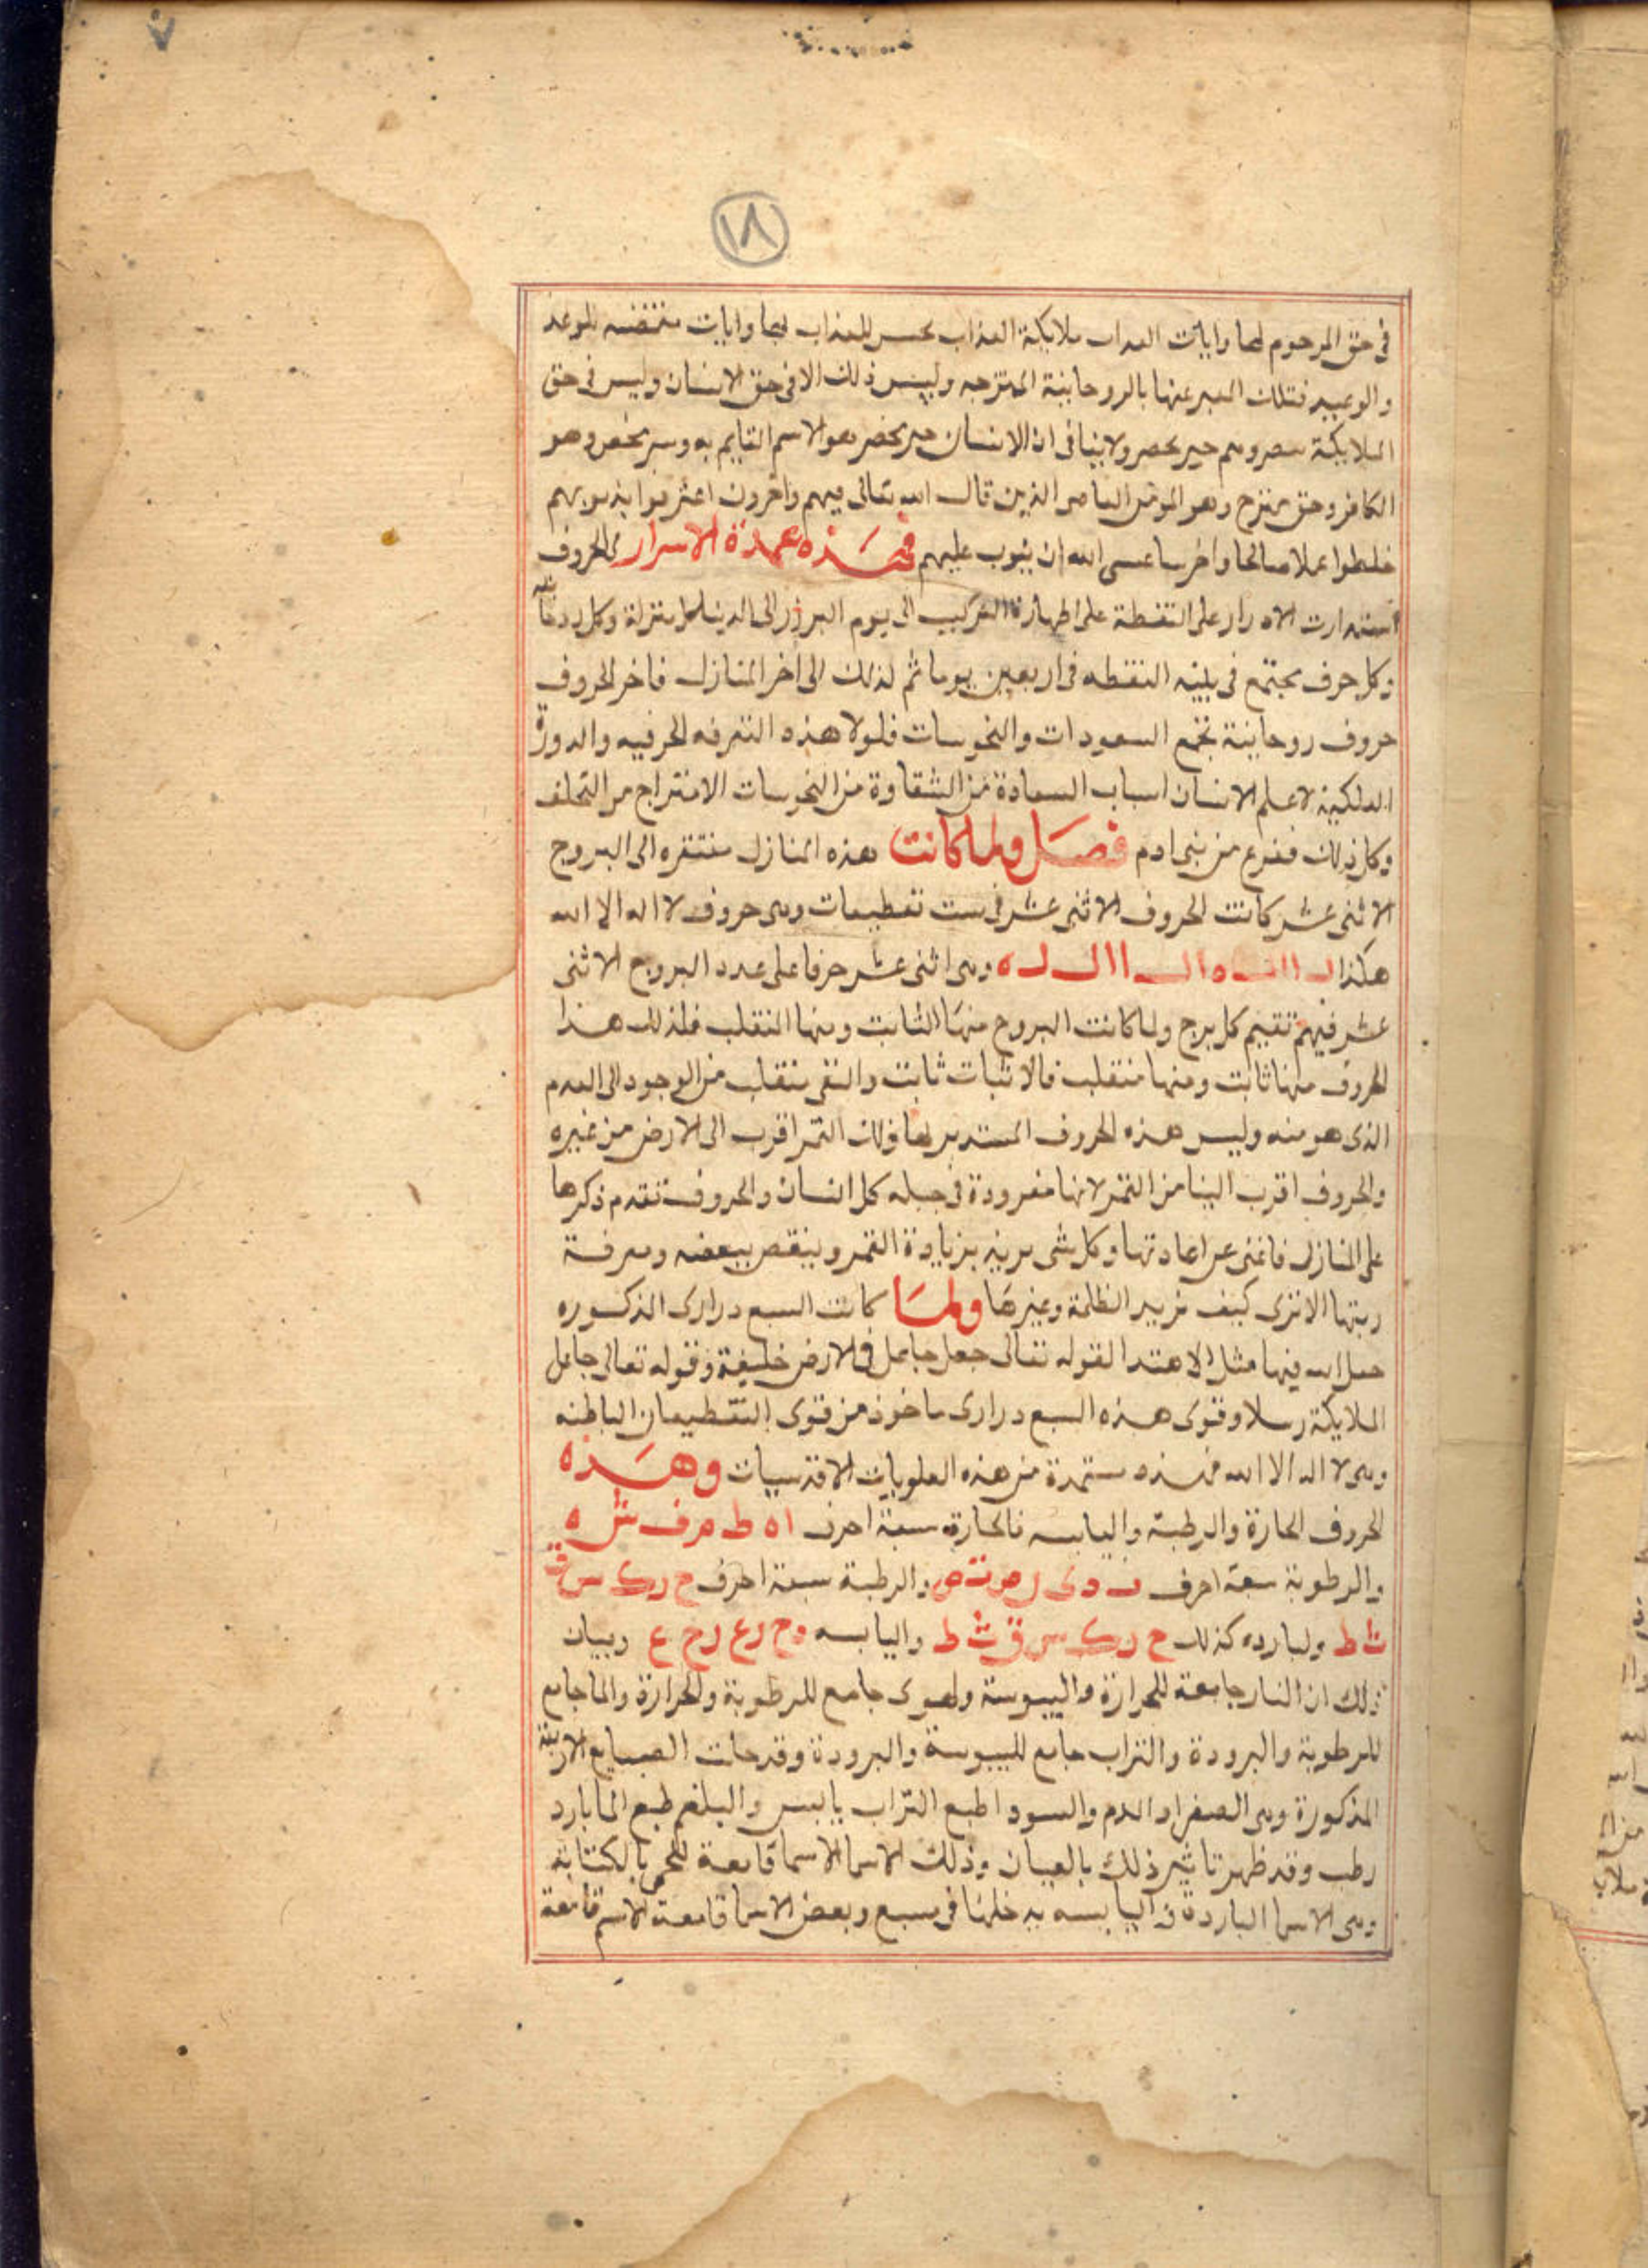 ١٨
في حق المرحوم لها وايات العداب ملايكة العذاب للعذاب لها وايات للوعد
والوعيد فتلك المعبر عنها بالروحانية الممتزجه وليس ذلك الا في حق الانسان وليس في حق
الملايكة ولا ينافي ان الانسان حير يحضر هو الاسم القايم به وهو
الكافر وحق يمتزج وهو المومن العاصي الذين قال الله تعالى فيهم واخرون اعترفوا بذنوبهم
خلطوا عملا صالحا واخر سيا عسى الله ان يتوب عليهم فهذه عمدة الاسرار للحروف
استدارت الادوار على النقطة على اظهار التركيب الى يوم البروز الى الدنيا
وكل حرف يجتمع في النقطه في اربعين يوما ثم لذلك الى اخر المنازل فاخر الحروف
حروف روحانية تجمع السعودات والنحوسات فلولا هذه التفرقه الحرفيه والدورة
الفلكية لا علم الانسان اسباب السعادة من الشقاوة من النحوسات الامتزاج من التخلف
وكان ذلك من بني ادم فصل ولما كانت هذه المنازل مفتقره الى البروج
الاثنى عشر كانت الحروف الاثنى عشر في ست تقطيعات وهى حروف لا اله الا الله
هكذا ل ا ا ل ه ا ل ا ا ل ل ه وهى اثنى عشر حرفا على عدد البروج الاثنى
عشر فيهم تقيم كل برج ولما كانت البروج منها الثابت ومنها المنقلب فلذلك هذا
الحروف منها ثابت ومنها منقلب فالاثبات ثابت والنفى منقلب من الوجود الى العدم
الذى هو منه وليس هذه الحروف المستدير لها فلك القمر اقرب الى الارض من غيره
والحروف اقرب الينا من القمر لانها مفرودة في جبله كل انسان والحروف تقدم ذكرها
على المنازل فاغنى عن اعادتها وكل شى يزيد بزيادة القمر وينقص ببعضه ومعرفة
ربتها الا ترى كيف تزيد الظلمة وغيرها ولما كانت السبع درارى المذكوره
جعل الله فيها مثل الاهتدا لقوله تعالى جعل جاعل في الارض خليفة وقوله تعالى جاعل
الملايكة رسلا وقوى هذه السبع درارى ماخوذ من قوى التقطيعات الباطنه
وهى لا اله الا الله فهذه مستمدة من هذه العلويات الاقدسيات وهذه
الحروف الحارة والرطبة واليابسه فالحارة سبعة احرف ا ه ط م ف ش ه
والرطوبة سبعة احرف ب و ى ن ص ت ض والرطبة سبعة احرف ح ر ك س ق
ث ط ولبارده كذلك ح ر ك س ق ث ظ واليابسه د ح ر ع ر ح ع وبيان
ذلك ان النار جامعة للحرارة واليبوسة والهوى جامع للرطوبة والحرارة والما جامع
للرطوبة والبرودة والتراب جامع لليبوسة والبرودة وقد جات الصبايع الاربعة
المذكورة وهى الصفرا والدم والسودا طبع التراب يابس والبلغم طبع الما بارد
رطب وقد ظهر تاثير ذلك بالعيان وذلك الاسما الاسما قامعة للحمى بالكتابة
وهى الاسما الباردة واليابسه يدخلها في سبع وبعض الاسما قامعة الاسم قامعة